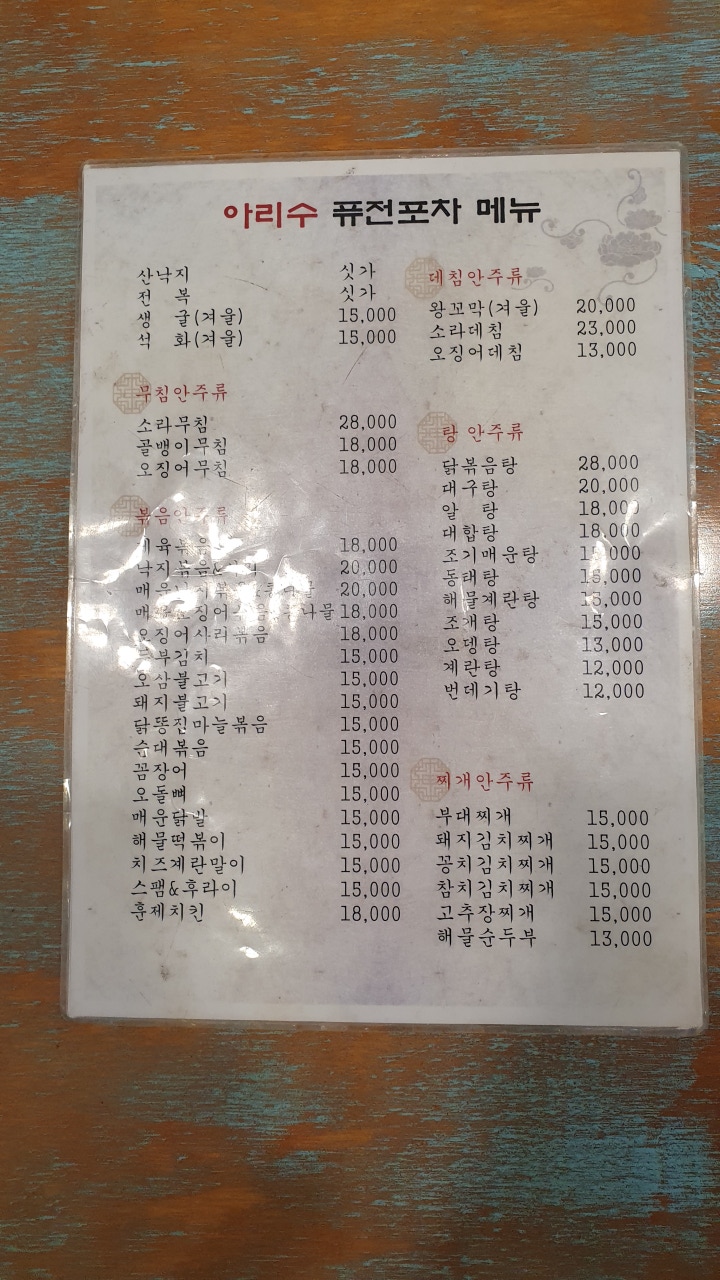 아리수 퓨전포차 메뉴
산낙지 싯가
전 복 싯가
생 굴(겨울) 15,000
석 화(겨울) 15,000
무침안주류
소라무침 28,000
골뱅이무침 18,000
오징어무침 18,000
볶음안주류
18,000
20,000
20,000
18,000
오징어사리볶음 18,000
두부김치 15,000
오삼불고기 15,000
돼지불고기 15,000
닭똥집마늘볶음 15,000
순대볶음 15,000
꼼장어 15,000
오돌뼈 15,000
매운닭발 15,000
해물떡볶이 15,000
치즈계란말이 15,000
스팸&후라이 15,000
훈제치킨 18,000
데침안주류
왕꼬막(겨울) 20,000
소라데침 23,000
오징어데침 13,000
탕 안주류
닭볶음탕 28,000
대구탕 20,000
알 탕 18,000
대합탕 18,000
조기매운탕
동태탕 15,000
해물계란탕 15,000
조개탕 15,000
오뎅탕 13,000
계란탕 12,000
번데기탕 12,000
찌개안주류
부대찌개 15,000
돼지김치찌개 15,000
꽁치김치찌개 15,000
참치김치찌개 15,000
고추장찌개 15,000
해물순두부 13,000